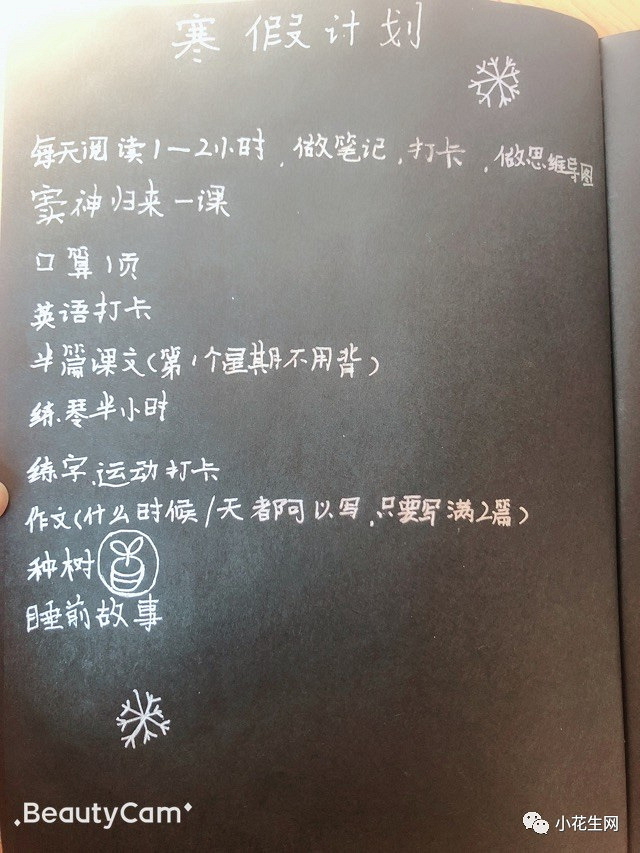 寒假计划
每天阅读1—2小时,做笔记,打卡,做思维导图
窦神归来一课
口算1页
英语打卡
半篇课文(第1个星期不用背)
练琴半小时
练字、运动打卡
作文(什么时候/天都可以写,只要写满2篇)
种树
睡前故事
BeautyCam
小花生网